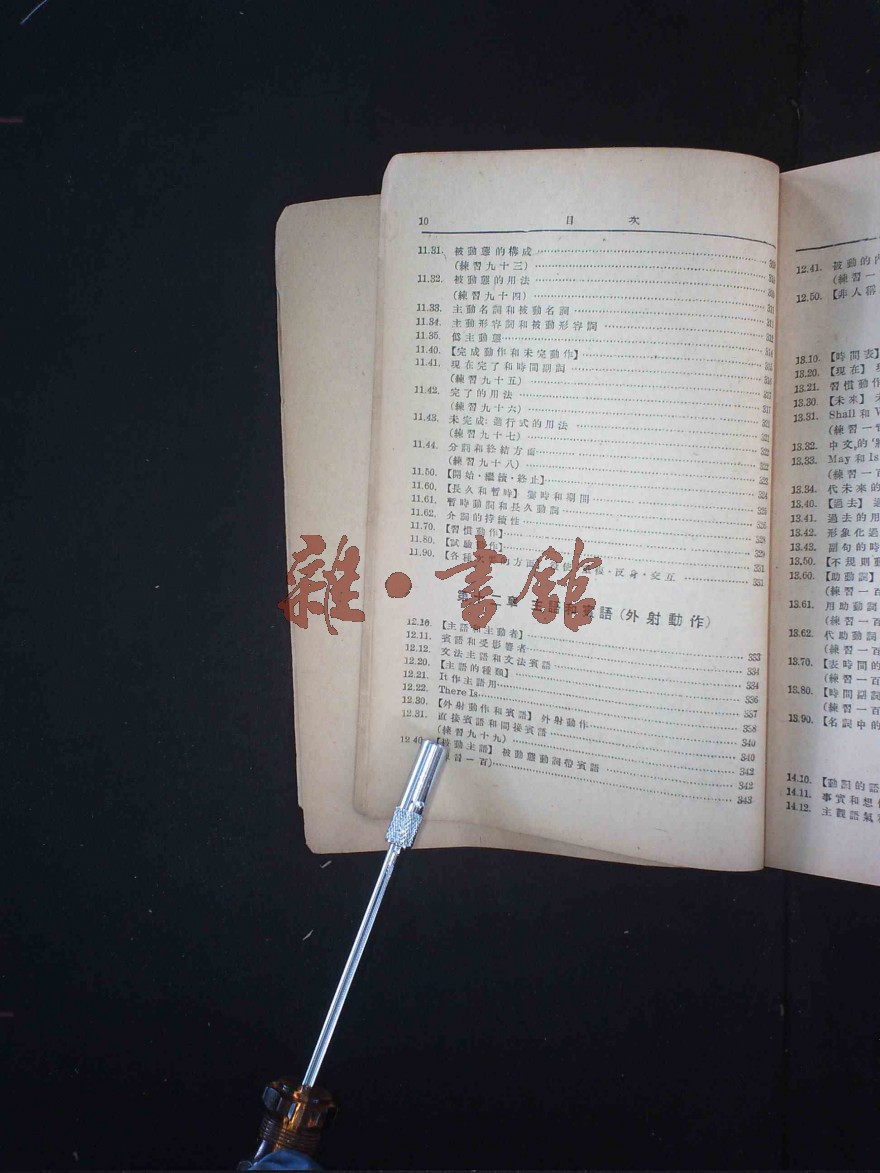 10 目 次
11.31. 被動態的構成
(練習九十三)
11.32. 被動態的用法
(練習九十四)
11.33. 主動名詞和被動名詞
11.34. 主動形容詞和被動形容詞
11.35. 低主動態
11.40. 【完成動作和未完動作】
11.41. 現在完了和時間副詞
(練習九十五)
11.42. 完了的用法
(練習九十六)
11.43. 未完成：進行式的用法
(練習九十七)
11.44. 分詞和終結方面
(練習九十八)
11.50. 【開始·繼續·終止】
11.60. 【長久和暫時】 霎時和期間 324
11.61. 暫時動詞和長久動詞
11.62. 介詞的持續性 326
11.70. 【習慣動作】 328
11.80. 【試驗動作】 329
11.90. 【各種次要的方面】 反身·交互 331
雜·書館
第十二章 主語和賓語(外射動作)
12.10. 【主語和主動者】 333
12.11. 賓語和受影響者 334
12.12. 文法主語和文法賓語 334
12.20. 【主語的種類】 336
12.21. It作主語用 337
12.22. There Is 338
12.30. 【外射動作和賓語】 外射動作 340
12.31. 直接賓語和間接賓語 340
(練習九十九) 342
12.40. 【被動主語】 被動態動詞帶賓語 342
(練習一百) 343
12.41. 被動的
(練習一
12.50. 【非人稱
13.10. 【時間表】
13.20. 【現在】
13.21. 習慣動作
13.30. 【未來】
13.31. Shall和
(練習一
13.32. 中文的
13.33. May和
(練習一
13.34. 代未來的
13.40. 【過去】
13.41. 過去的用
13.42. 形象化過
13.43. 副句的時
13.50. 【不規則
13.60. 【助動詞】
(練習一百
13.61. 用助動詞
(練習一百
13.62. 代助動詞
(練習一百
13.70. 【表時間的
(練習一百
13.80. 【時間副詞
(練習一百
13.90. 【名詞中的
14.10. 【動詞的語
14.11. 事實和想
14.12. 主觀語氣